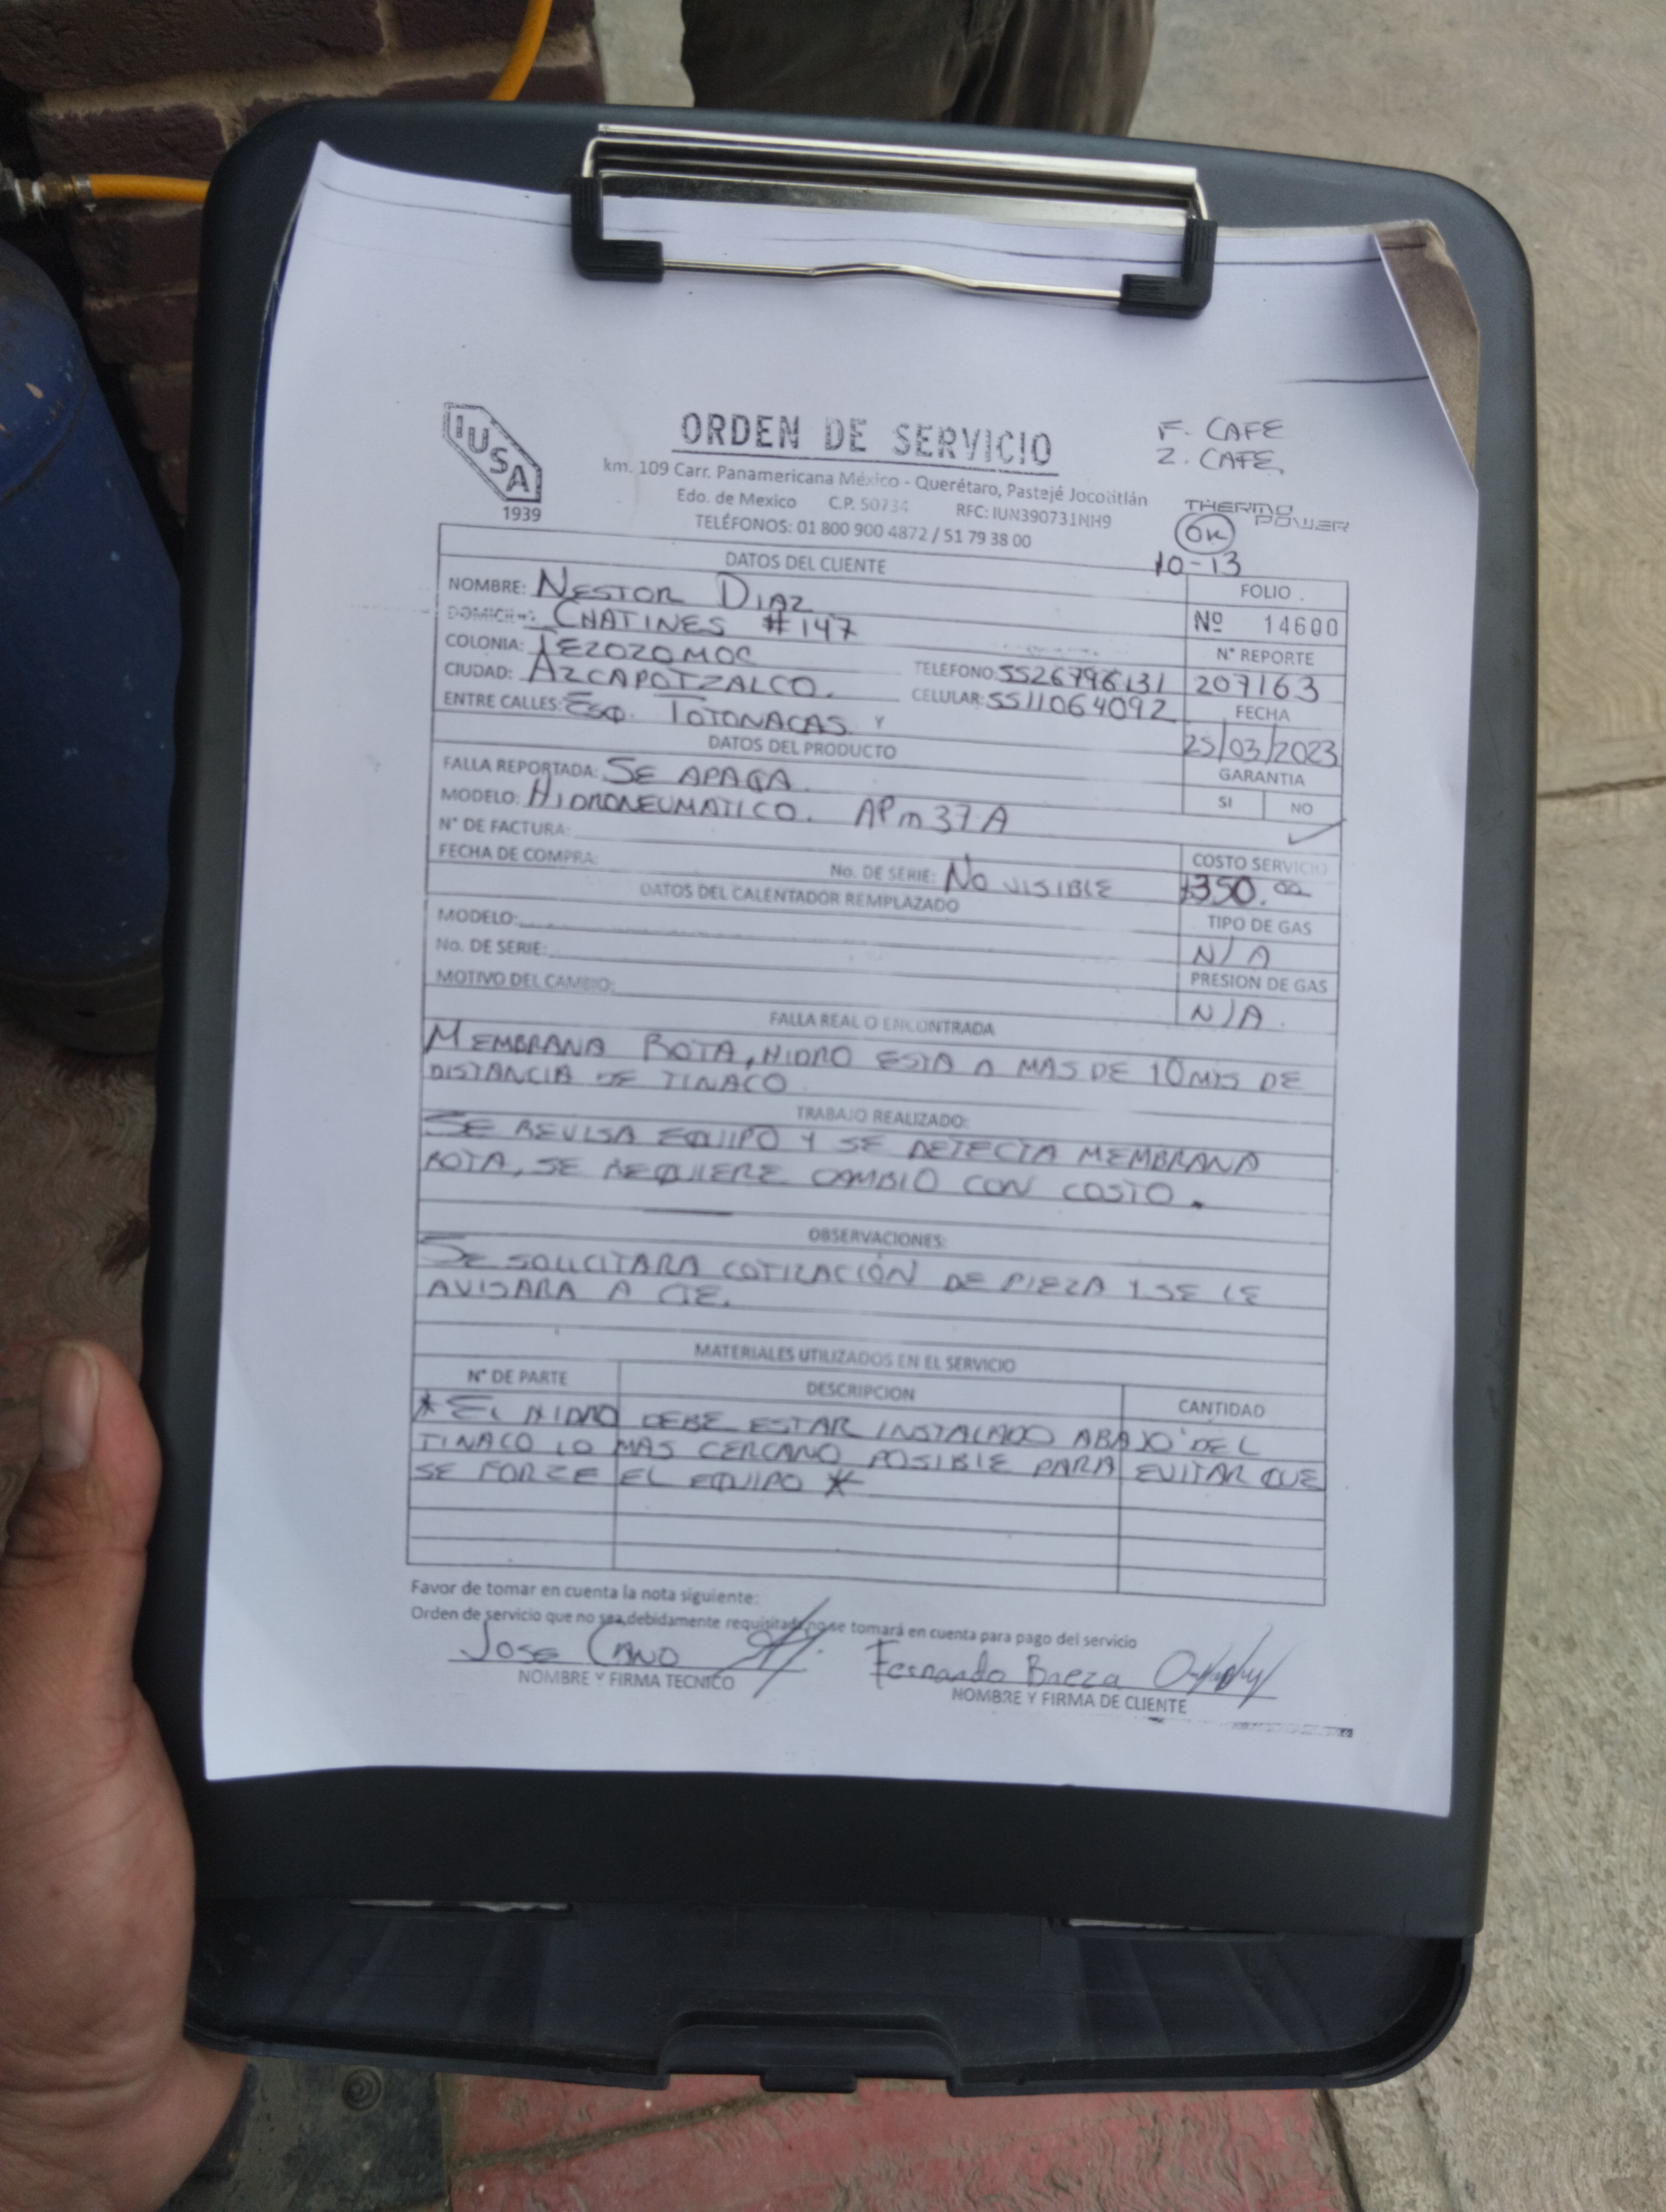 IUSA
1939
ORDEN DE SERVICIO
km. 109 Carr. Panamericana México - Querétaro, Pastejé Jocotitlán
Edo. de Mexico C.P. 50734 RFC: IUN390731NH9
TELÉFONOS: 01 800 900 4872 / 51 79 38 00
F. CAFE
Z. CAFE
THERMO POWER
OK
10-13
DATOS DEL CLIENTE
NOMBRE: NESTOR DIAZ
DOMICILIO: CHATINES #147
COLONIA: TEZOZOMOC
CIUDAD: AZCAPOTZALCO.
TELEFONO: 5526796131
CELULAR: 5511064092
ENTRE CALLES: ESQ. TOTONACAS. Y
FOLIO
Nº 14600
N° REPORTE
207163
FECHA
25/03/2023
GARANTIA
SI NO
DATOS DEL PRODUCTO
FALLA REPORTADA: SE APAGA.
MODELO: HIDRONEUMATICO. APm37A
N° DE FACTURA:
FECHA DE COMPRA:
No. DE SERIE: NO VISIBLE
COSTO SERVICIO
$350.00
DATOS DEL CALENTADOR REMPLAZADO
MODELO:
No. DE SERIE:
MOTIVO DEL CAMBIO:
TIPO DE GAS
N/A
PRESION DE GAS
N/A.
FALLA REAL O ENCONTRADA
MEMBRANA ROTA, HIDRO ESTA A MAS DE 10MTS DE
DISTANCIA DE TINACO
TRABAJO REALIZADO:
SE REVISA EQUIPO Y SE DETECTA MEMBRANA
ROTA, SE REQUIERE CAMBIO CON COSTO.
OBSERVACIONES:
SE SOLICITARA COTIZACIÓN DE PIEZA Y SE LE
AVISARA A CTE.
MATERIALES UTILIZADOS EN EL SERVICIO
N° DE PARTE DESCRIPCION CANTIDAD
* EL HIDRO DEBE ESTAR INSTALADO ABAJO DEL
TINACO LO MAS CERCANO POSIBLE PARA EVITAR QUE
SE FORZE EL EQUIPO *
Favor de tomar en cuenta la nota siguiente:
Orden de servicio que no sea debidamente requisitada no se tomará en cuenta para pago del servicio
JOSE CANO
Fernando Baeza
NOMBRE Y FIRMA TECNICO
NOMBRE Y FIRMA DE CLIENTE